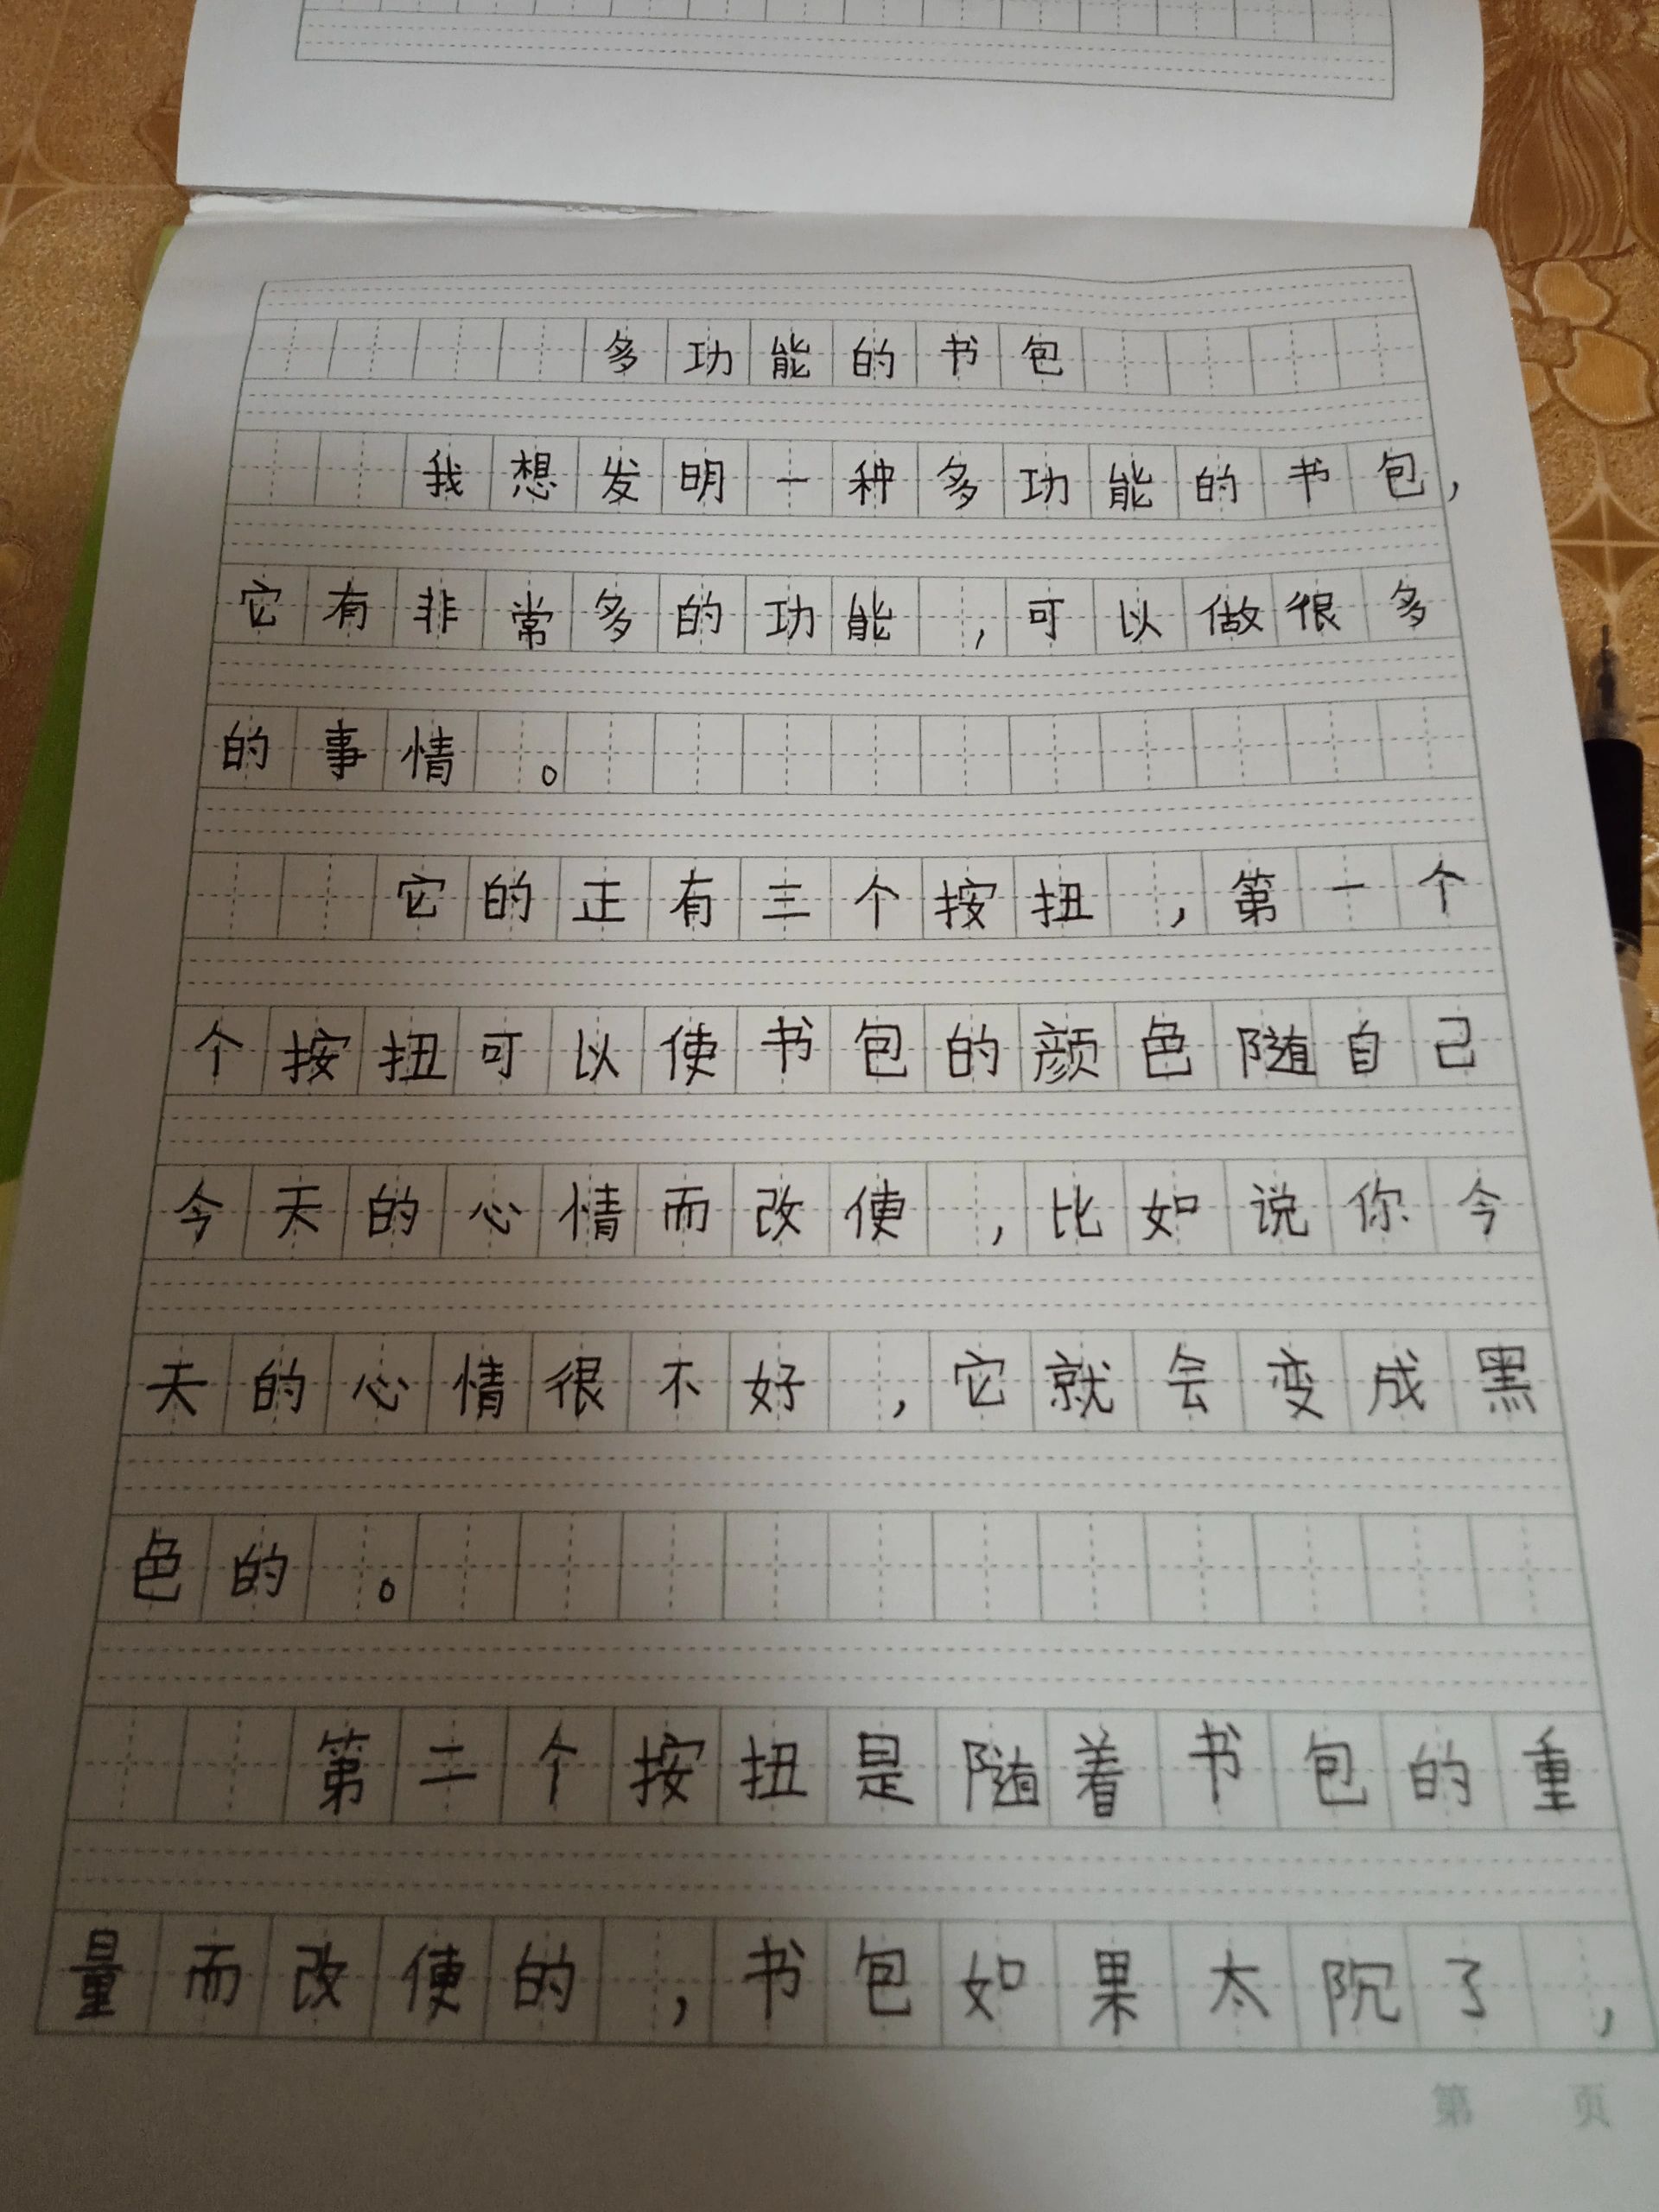 多功能的书包
我想发明一种多功能的书包，
它有非常多的功能，可以做很多
的事情。
它的正有三个按扭，第一个
个按扭可以使书包的颜色随自己
今天的心情而改使，比如说你今
天的心情很不好，它就会变成黑
色的。
第二个按扭是随着书包的重
量而改使的，书包如果太阮了，
第 页